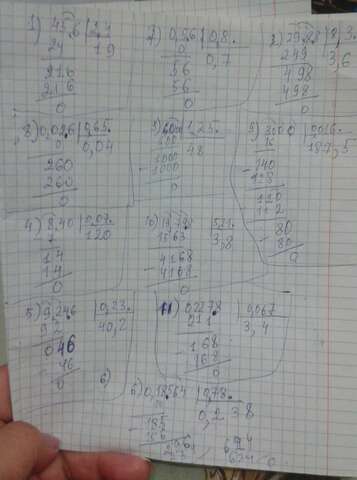 1) 45,6 2,4
24 19
216
216
0
2) 0,56 0,8
0 0,7
56
56
0
2) 29,88 8,3
249 3,6
498
498
0
8) 0,026 0,65
0 0,04
260
260
0
9) 6000 1,25
500 48
1000
1000
0
3) 3000 0,016
16 187,5
140
128
120
112
80
80
0
4) 8,40 0,07
7 120
14
14
0
10) 3,8
1563
4168
4168
0
5) 9,246 0,23
92 40,2
046
46
0
11) 0,2278 0,067
201 3,4
268
268
0
6)
6) 0,18564 0,78
0,238
156
0